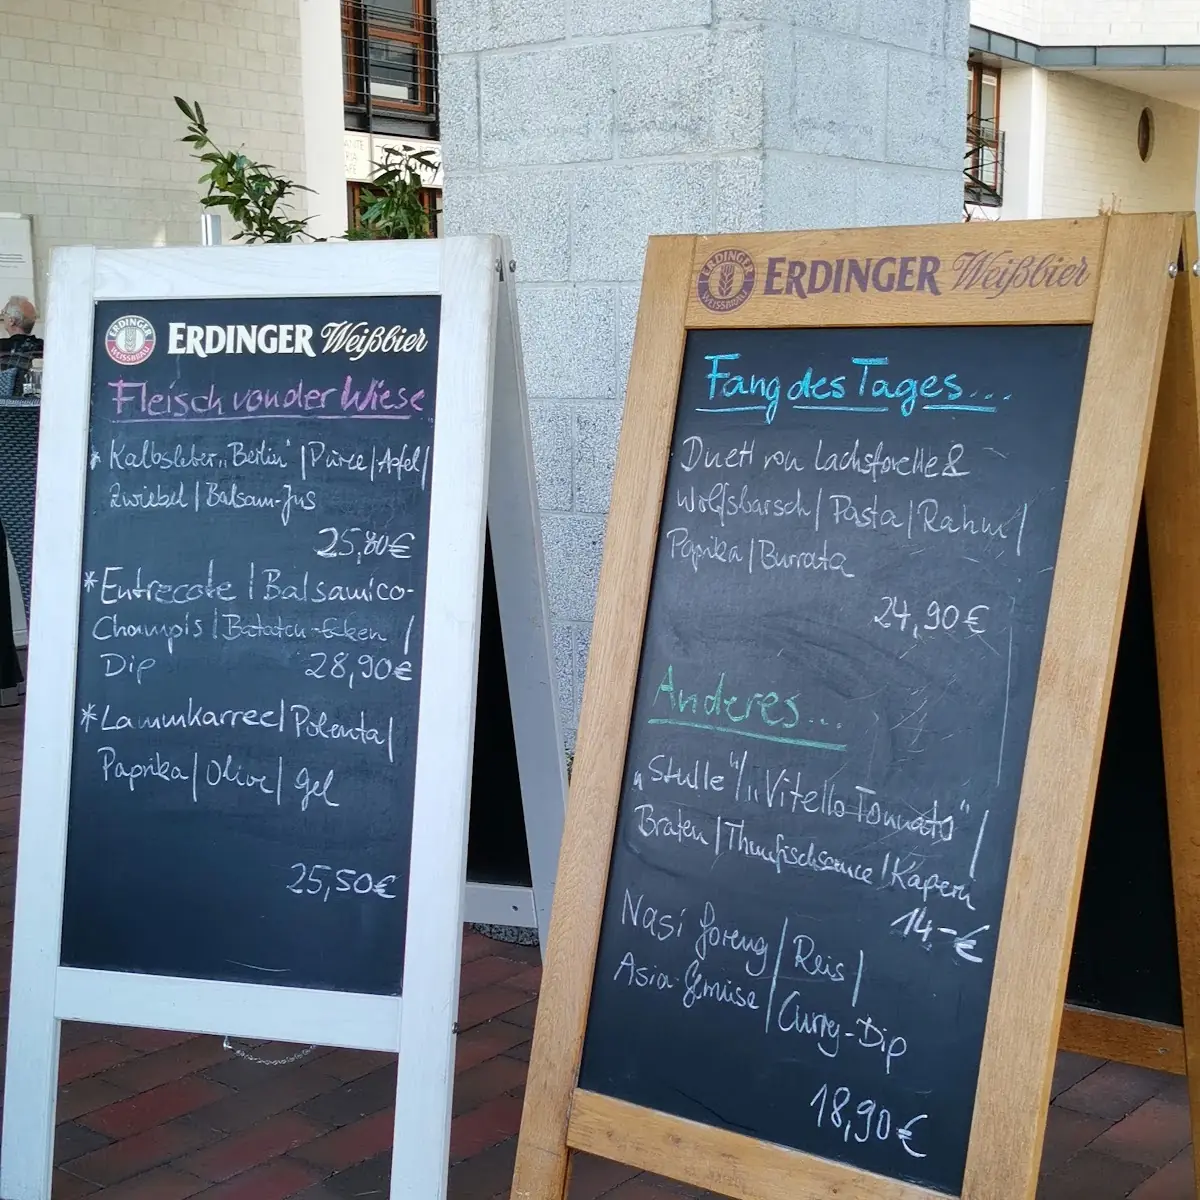 ERDINGER Weißbier
Fleisch von der Wiese
* Kalbsleber „Berlin" | Püree | Apfel |
Zwiebel | Balsam-Jus
25,80€
* Entrecote | Balsamico-
Champis | Bataten-Ecken |
Dip 28,90€
* Lammkarree | Polenta |
Paprika | Olive | Gel
25,50€
ERDINGER WEISSBRÄU
ERDINGER Weißbier
Fang des Tages...
Duett von Lachsforelle &
Wolfsbarsch | Pasta | Rahm |
Paprika | Burrata
24,90€
Anderes...
„Stulle" | „Vitello Tonnato" |
Braten | Thunfischsauce | Kapern
14,-€
Nasi Goreng | Reis |
Asia-Gemüse | Curry-Dip
18,90€